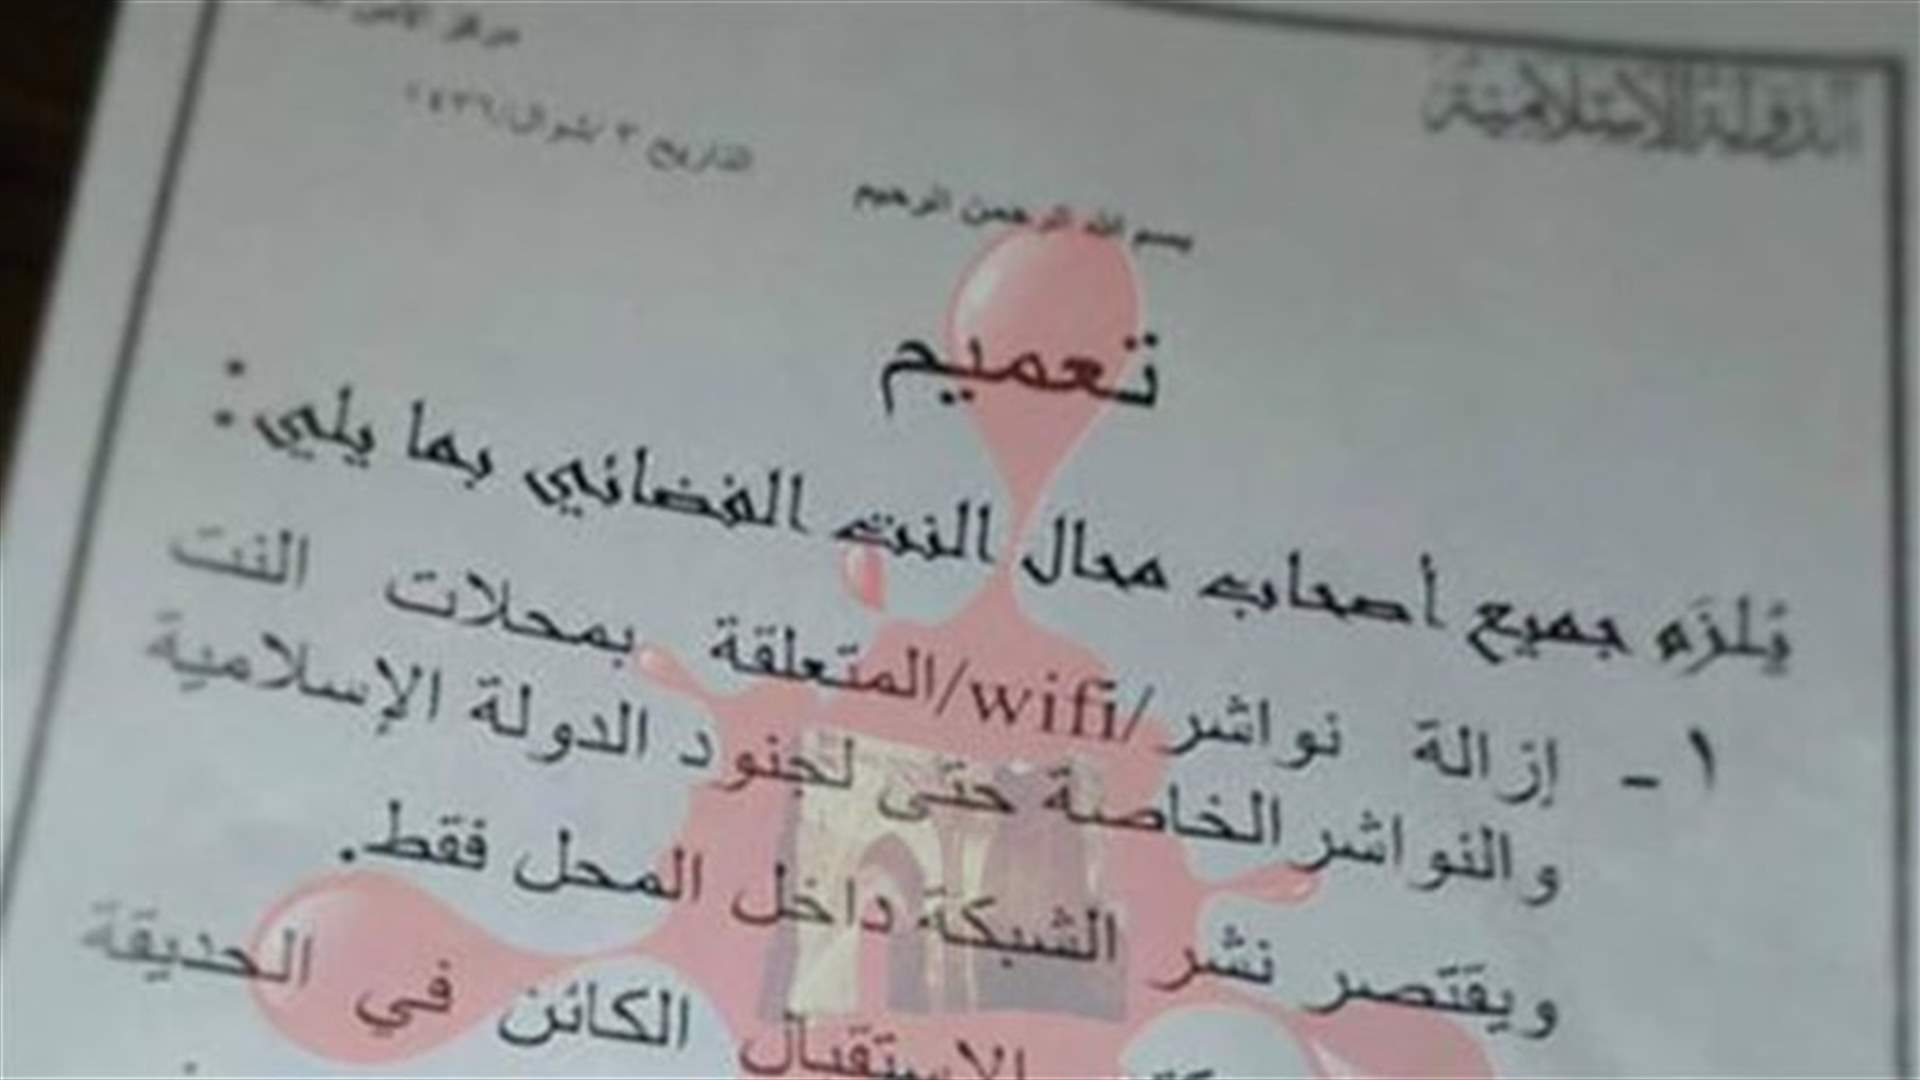 الدولة الإسلامية
مركز الأمن
التاريخ ٣ /شوال/١٤٣٦
بسم الله الرحمن الرحيم
تعميم
يُلزَم جميع أصحاب محال النت الفضائي بما يلي :
١- إزالة نواشر /wifi/المتعلقة بمحلات النت
والنواشر الخاصة حتى لجنود الدولة الإسلامية
ويقتصر نشر الشبكة داخل المحل فقط.
الاستقبال الكائن في الحديقة